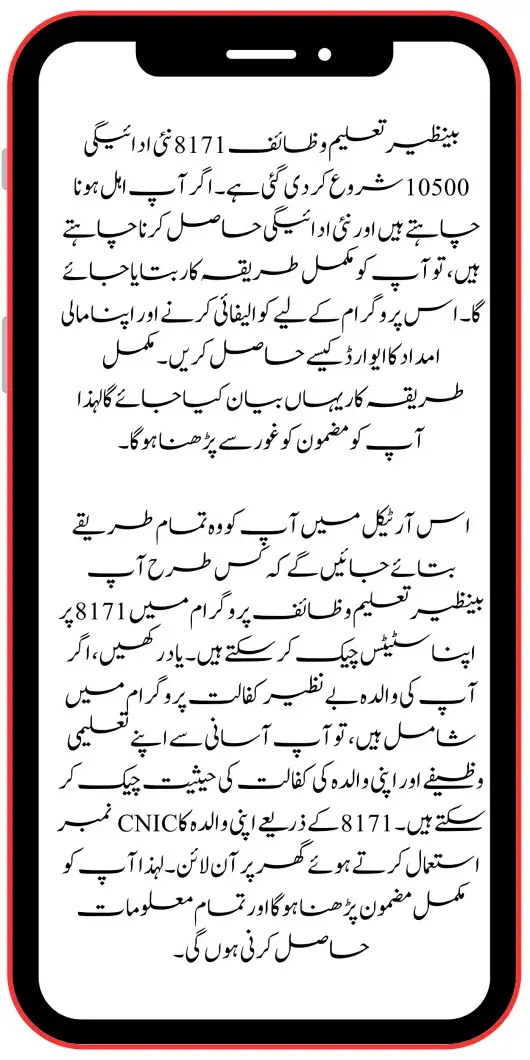 بینظیر تعلیم وظائف 8171 نئی ادائیگی
10500 شروع کر دی گئی ہے۔ اگر آپ اہل ہونا
چاہتے ہیں اور نئی ادائیگی حاصل کرنا چاہتے
ہیں، تو آپ کو مکمل طریقہ کار بتایا جائے
گا۔ اس پروگرام کے لیے کوالیفائی کرنے اور اپنا مالی
امداد کا ایوارڈ کیسے حاصل کریں۔ مکمل
طریقہ کار یہاں بیان کیا جائے گا لہذا
آپ کو مضمون کو غور سے پڑھنا ہوگا۔
اس آرٹیکل میں آپ کو وہ تمام طریقے
بتائے جائیں گے کہ کس طرح آپ
بینظیر تعلیم وظائف پروگرام میں 8171 پر
اپنا سٹیٹس چیک کر سکتے ہیں۔ یاد رکھیں، اگر
آپ کی والدہ بے نظیر کفالت پروگرام میں
شامل ہیں، تو آپ آسانی سے اپنے تعلیمی
وظیفے اور اپنی والدہ کی کفالت کی حیثیت چیک کر
سکتے ہیں۔ 8171 کے ذریعے اپنی والدہ کا CNIC نمبر
استعمال کرتے ہوئے گھر پر آن لائن۔ لہذا آپ کو
مکمل مضمون پڑھنا ہوگا اور تمام معلومات
حاصل کرنی ہوں گی۔